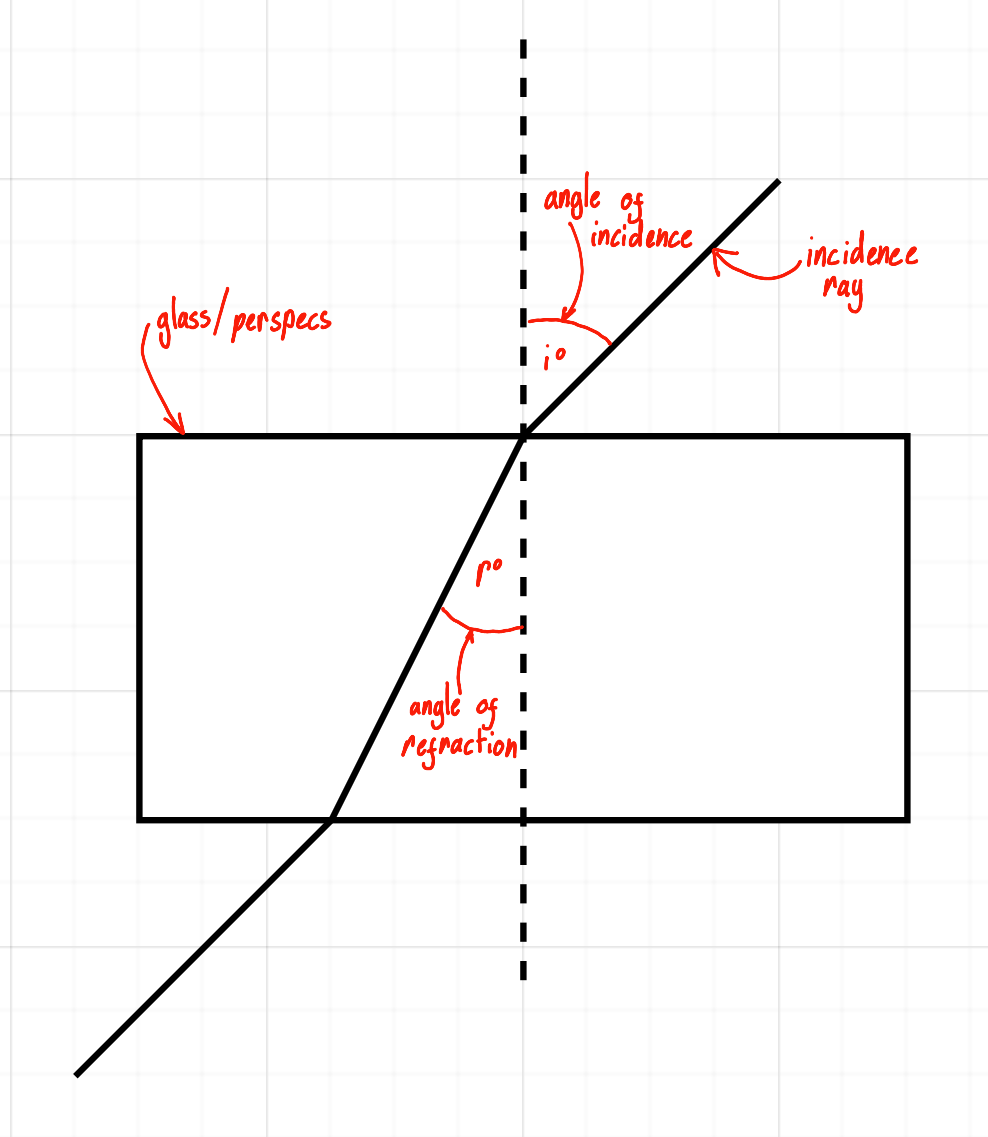 angle of
incidence
incidence
ray
glass/perspecs
i°
r°
angle of
refraction